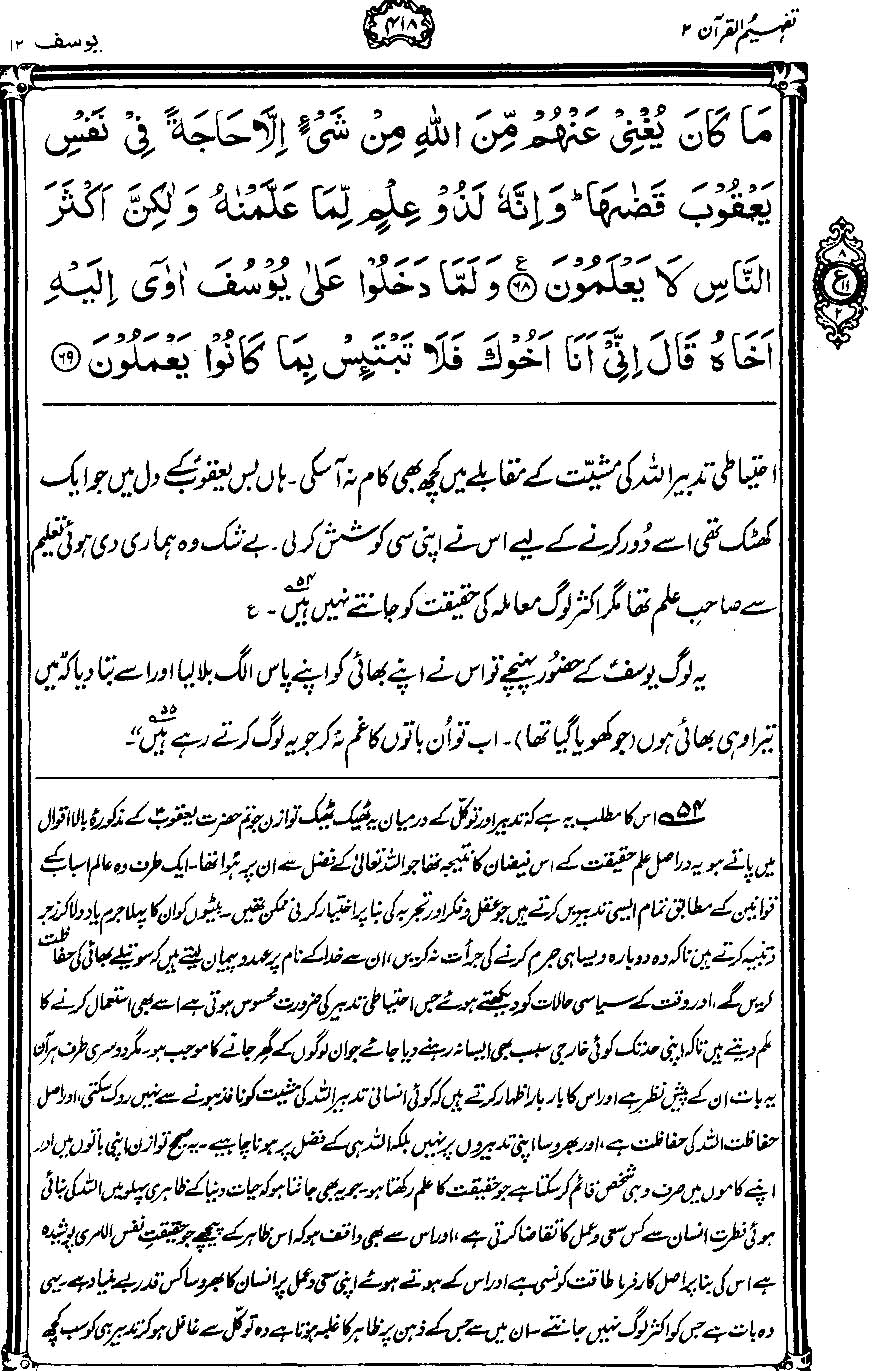 تفہیم القرآن ۲
۴۱۸
یوسف ۱۲
مَا كَانَ يُغْنِىْ عَنْهُمْ مِّنَ اللّٰهِ مِنْ شَىْءٍ اِلَّا حَاجَةً فِىْ نَفْسِ
يَعْقُوْبَ قَضٰىهَا ؕ وَ اِنَّهٗ لَذُوْ عِلْمٍ لِّمَا عَلَّمْنٰهُ وَ لٰكِنَّ اَكْثَرَ
النَّاسِ لَا يَعْلَمُوْنَ ﴿۶۸﴾ ع وَ لَمَّا دَخَلُوْا عَلٰى يُوْسُفَ اٰوٰٓى اِلَيْهِ
اَخَاهُ قَالَ اِنِّىْٓ اَنَا اَخُوْكَ فَلَا تَبْتَئِسْ بِمَا كَانُوْا يَعْمَلُوْنَ ﴿۶۹﴾
۸
ع
۱۱
۲
احتیاطی تدبیر اللہ کی مشیّت کے مقابلے میں کچھ بھی کام نہ آ سکی۔ ہاں بس یعقوبؑ کے دل میں جو ایک
کھٹک تھی اسے دُور کرنے کے لیے اس نے اپنی سی کوشش کر لی۔ بے شک وہ ہماری دی ہوئی تعلیم
سے صاحبِ علم تھا مگر اکثر لوگ معاملہ کی حقیقت کو جانتے نہیں ہیں۵۴۔ ع
یہ لوگ یوسفؑ کے حضور پہنچے تو اس نے اپنے بھائی کو اپنے پاس الگ بلا لیا اور اسے بتا دیا کہ ”میں
تیرا وہی بھائی ہوں (جو کھویا گیا تھا)۔ اب تو اُن باتوں کا غم نہ کر جو یہ لوگ کرتے رہے ہیں۵۵“۔
۵۴ اس کا مطلب یہ ہے کہ تدبیر اور توکل کے درمیان یہ ٹھیک ٹھیک توازن جو تم حضرت یعقوبؑ کے مذکورۂ بالا اقوال
میں پاتے ہو یہ دراصل علمِ حقیقت کے اس فیضان کا نتیجہ تھا جو اللہ تعالیٰ کے فضل سے ان پر ہُوا تھا۔ ایک طرف وہ عالمِ اسباب کے
قوانین کے مطابق تمام ایسی تدبیریں کرتے ہیں جو عقل و فکر اور تجربہ کی بنا پر اختیار کرنی ممکن تھیں۔ بیٹوں کو ان کا پہلا جرم یاد دلا کر زجر
و تنبیہ کرتے ہیں تاکہ وہ دوبارہ ویسا ہی جرم کرنے کی جرأت نہ کریں، ان سے خدا کے نام پر عہد و پیمان لیتے ہیں کہ سوتیلے بھائی کی حفاظت
کریں گے، اور وقت کے سیاسی حالات کو دیکھتے ہوئے جس احتیاطی تدبیر کی ضرورت محسوس ہوتی ہے اسے بھی استعمال کرنے کا
حکم دیتے ہیں تاکہ اپنی حد تک کوئی خارجی سبب بھی ایسا نہ رہنے دیا جائے جو ان لوگوں کے گھِر جانے کا موجب ہو۔ مگر دوسری طرف ہر آن
یہ بات ان کے پیشِ نظر ہے اور اس کا بار بار اظہار کرتے ہیں کہ کوئی انسانی تدبیر اللہ کی مشیّت کو نافذ ہونے سے نہیں روک سکتی، اور اصل
حفاظت اللہ کی حفاظت ہے، اور بھروسا اپنی تدبیروں پر نہیں بلکہ اللہ ہی کے فضل پر ہونا چاہیے۔ یہ صحیح توازن اپنی باتوں میں اور
اپنے کاموں میں صرف وہی شخص قائم کر سکتا ہے جو حقیقت کا علم رکھتا ہو۔ جو یہ بھی جانتا ہو کہ حیاتِ دنیا کے ظاہری پہلو میں اللہ کی بنائی
ہوئی فطرت انسان سے کس سعی و عمل کا تقاضا کرتی ہے، اور اس سے بھی واقف ہو کہ اس ظاہر کے پیچھے جو حقیقتِ نفس الامری پوشیدہ
ہے اس کی بنا پر اصل کارفرما طاقت کونسی ہے اور اس کے ہوتے ہوئے اپنی سعی و عمل پر انسان کا بھروسا کس قدر بے بنیاد ہے۔ یہی
وہ بات ہے جس کو اکثر لوگ نہیں جانتے۔ ان میں سے جس کے ذہن پر ظاہر کا غلبہ ہوتا ہے وہ توکل سے غافل ہو کر تدبیر ہی کو سب کچھ